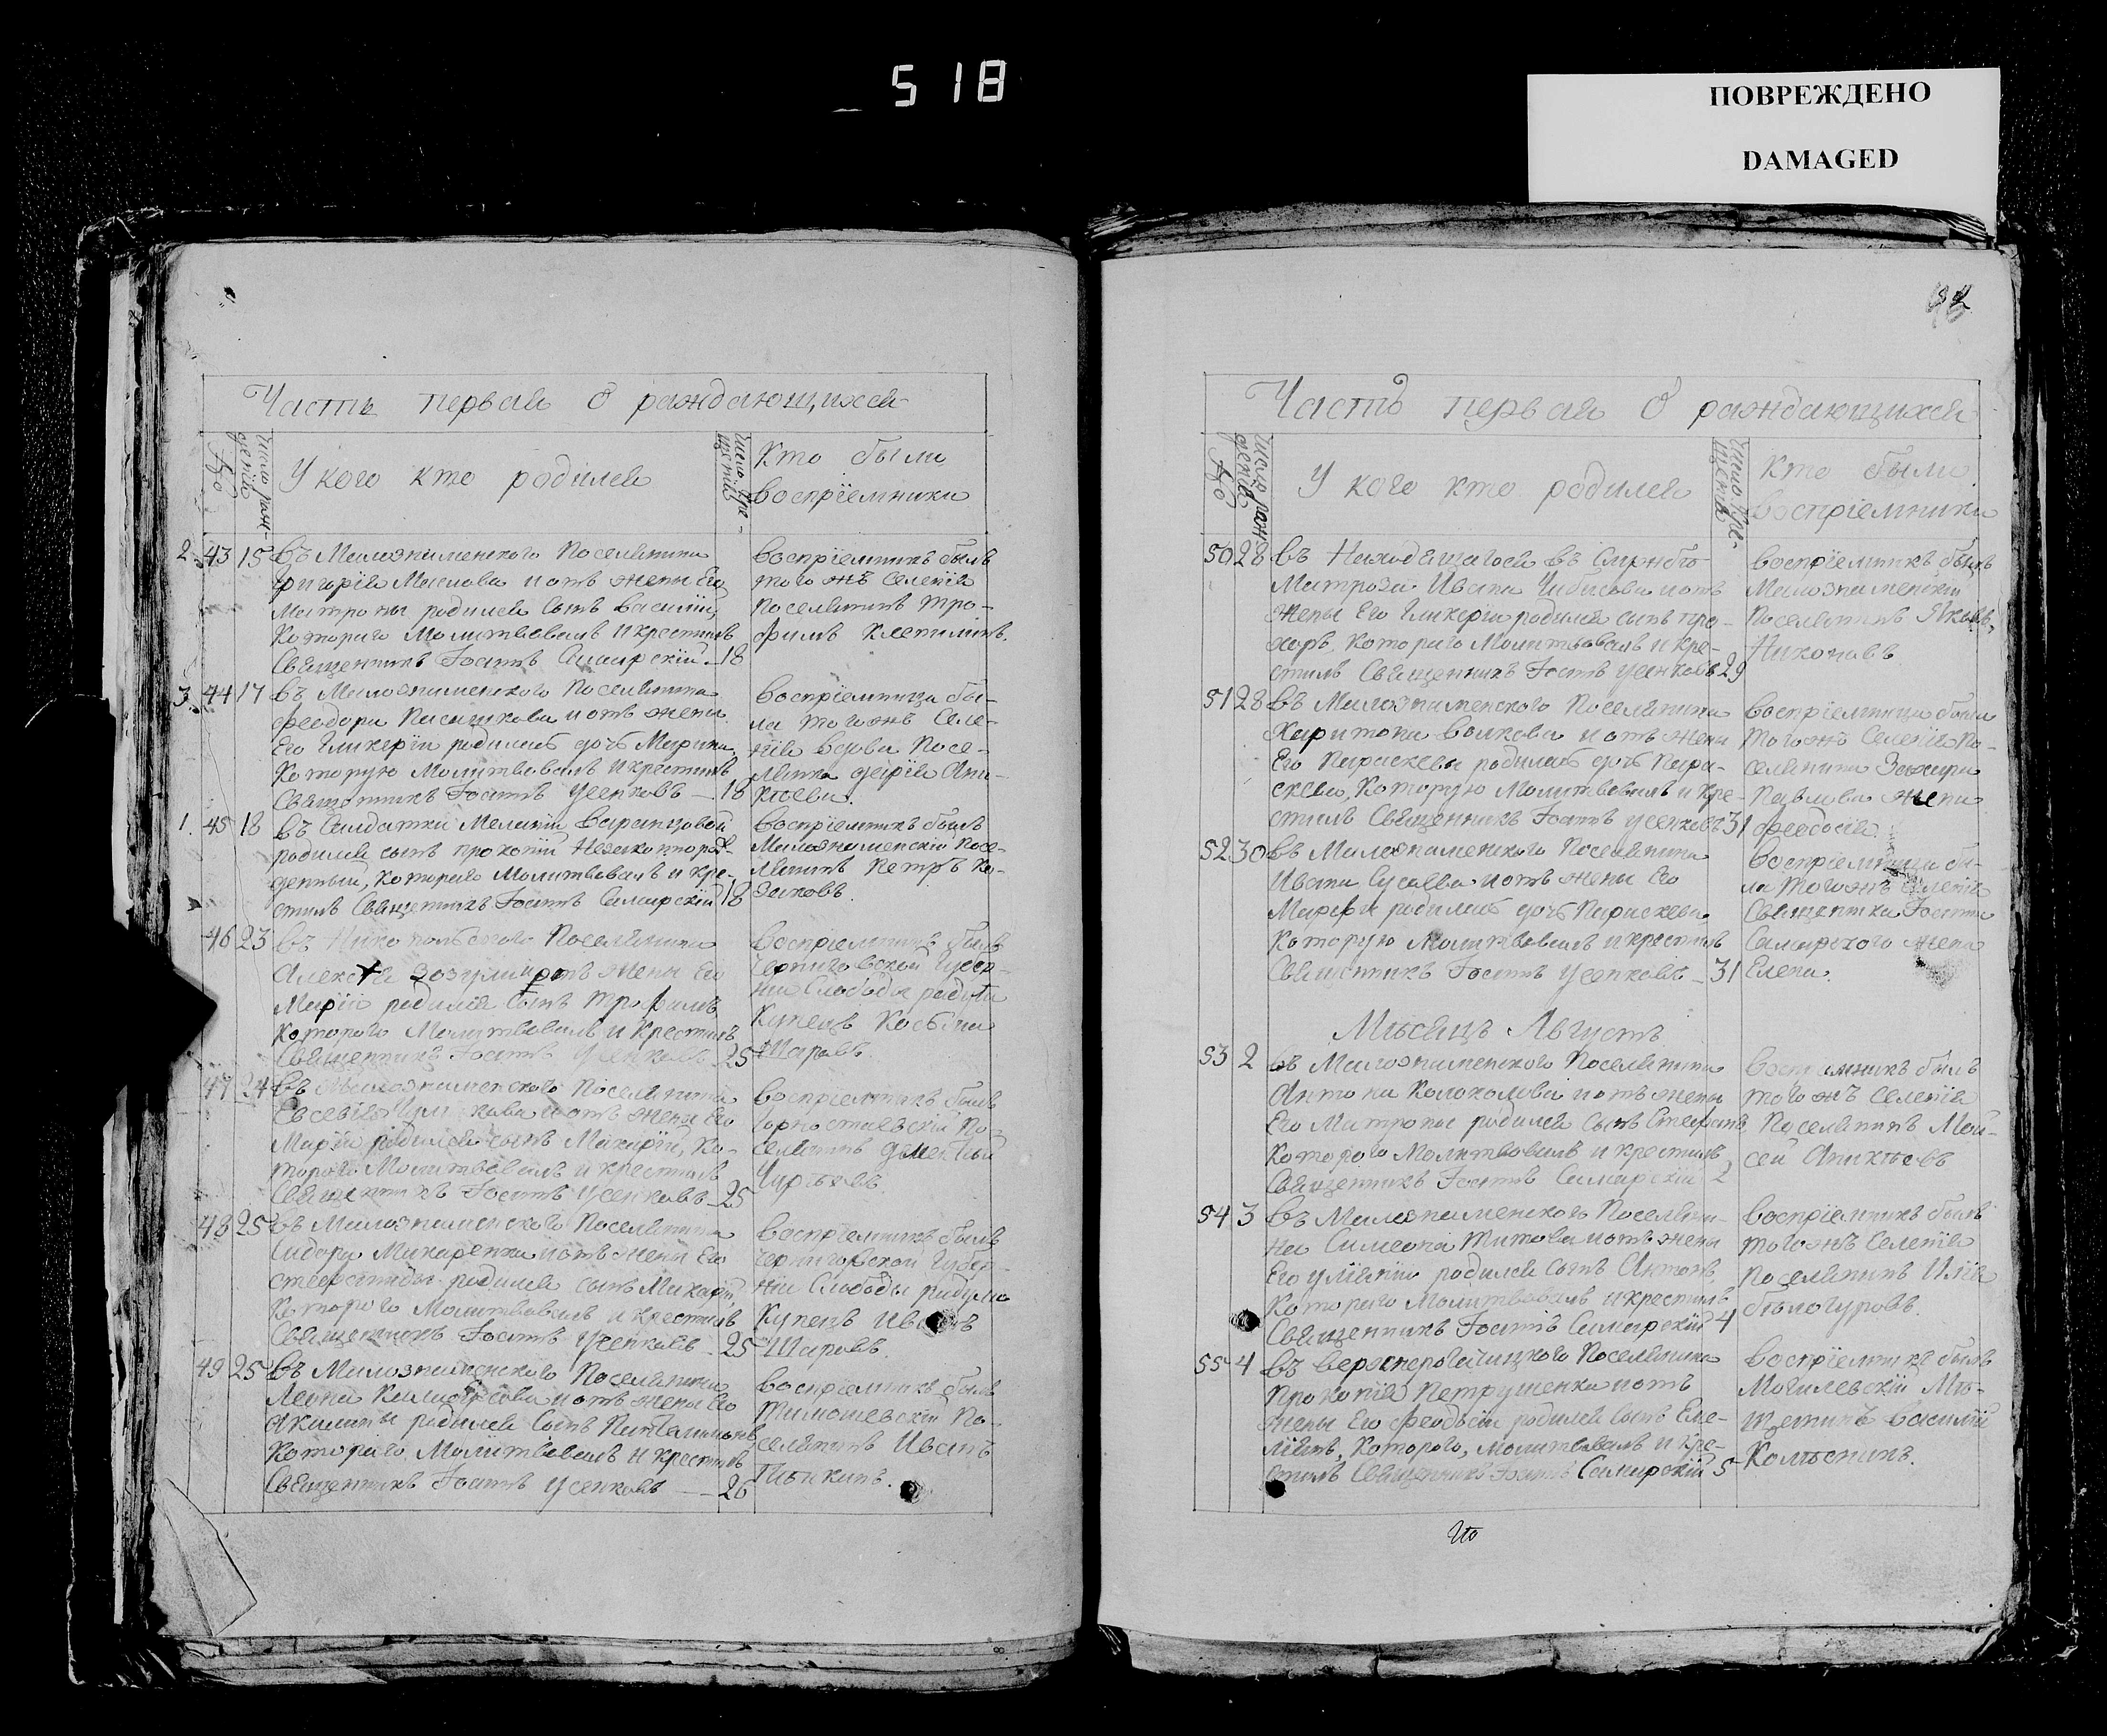 518
ПОВРЕЖДЕНО
DAMAGED
Часть первая О раждающихся
№
число рож-
денія
У кого кто родился
число кре-
щенія
Кто были
воспріемники
2. 43 15 въ Малознаменского Поселянина
Григорія Маслова и отъ жены Его
Матроны родился сынъ Василій,
Которого Молитвовалъ И крестилъ
Священникъ Іоаннъ Самарскій 18
воспріемникъ былъ
того жъ Селенія
Поселянинъ Тро-
фимъ
3. 44 17 въ Малознаменского Поселянина
Феодора и отъ жены
Его Гликеріи родилась дочь Марина,
Которую Молитвовалъ И крестилъ
Священникъ Іоаннъ Усенковъ 18
воспріемница бы-
ла того жъ Селе-
нія вдова Посе-
лянка Дарія Ани-
кѣева.
1. 45 18 въ Салдатки Меланіи Варанцовой
родился сынъ Прокопій Незаконнорож-
денный, Которого Молитвовалъ и кре-
стилъ Священникъ Іоаннъ Самарскій 18
воспріемникъ былъ
Малознаменскій Посе-
лянинъ Петръ Ко-
заковъ.
46 23 въ Никопольского Поселянина
Алексѣя Зозули и отъ жены Его
Маріи родился сынъ Трофимъ
Которого Молитвовалъ И крестилъ
Священникъ Іоаннъ Усенковъ 25
воспріемникъ былъ
Черниговской Губер-
ніи Слободы Радули
Купецъ Косьма
Шаровъ.
47 24 въ Малознаменского Поселянина
Евсевія и отъ жены Его
Маріи родился сынъ Макарій, Ко-
торого Молитвовалъ и крестилъ
Священникъ Іоаннъ Усенковъ 25
воспріемникъ былъ
Горностаевскій По-
селянинъ Дементій
48 25 въ Малознаменского Поселянина
Сидора Макаренка и отъ жены Его
Стефаниды родился сынъ Макарій
Которого Молитвовалъ и крестилъ
Священникъ Іоаннъ Усенковъ 25
воспріемникъ былъ
Черниговской Губер-
ніи Слободы Радули
Купецъ Иванъ
Шаровъ.
49 25 въ Малознаменского Поселянина
Леона и отъ жены Его
Акилины родился Сынъ Пантелимонъ
Которого Молитвовалъ И крестилъ
Священникъ Іоаннъ Усенковъ 26
воспріемникъ былъ
Тимошевскій По-
селянинъ Иванъ
Часть первая О раждающихся
№
число рож-
денія
У кого кто родился
число кре-
щенія
Кто были
воспріемники
50 28 въ Находящагося въ Службѣ
Матроза Ивана Чибисова и отъ
жены Его Гликеріи родился сынъ Про-
хоръ, Которого Молитвовалъ и кре-
стилъ Священникъ Іоаннъ Усенковъ 29
воспріемникъ былъ
Малознаменскій
Поселянинъ Яковъ
Никоновъ.
51 28 въ Малознаменского Поселянина
Харитона Волкова и отъ жены
Его Параскевы родилась дочь Пара-
скева, Которую Молитвовалъ и кре-
стилъ Священникъ Іоаннъ Усенковъ 31
воспріемница была
того жъ Селенія По-
селянина Захара
Павлова жена
Феодосія.
52 30 въ Малознаменского Поселянина
Ивана Сусаева и отъ жены Его
Марфы родилась дочь Параскева
Которую Молитвовалъ и крестилъ
Священникъ Іоаннъ Усенковъ 31
воспріемница бы-
ла того жъ Селенія
Священника Іоанна
Самарского жена
Елена.
Мѣсяцъ Августъ
53 2 въ Малознаменского Поселянина
Антона Колоколова и отъ жены
Его Матроны родился Сынъ Стефанъ,
Которого Молитвовалъ и крестилъ
Священникъ Іоаннъ Самарскій 2
былъ
того жъ Селенія
Поселянинъ Мои-
сей Аникѣевъ
54 3 въ Малознаменского Поселяни-
на Симеона Титова и отъ жены
Его Уліяніи родился сынъ Антонъ,
Которого Молитвовалъ и крестилъ
Священникъ Іоаннъ Самарскій 4
воспріемникъ былъ
того жъ Селенія
Поселянинъ Илія
Бѣлогуровъ.
55 4 въ Верхнерогачицкого Поселянина
Прокопія Петрушенка и отъ
жены Его Феодосіи родился сынъ Еме-
ліянъ, Которого, Молитвовалъ и кре-
стилъ Священникъ Іоаннъ Самарскій 5
воспріемникъ былъ
Могилевскій Мѣ-
щанинъ Василій
Колѣсникъ.